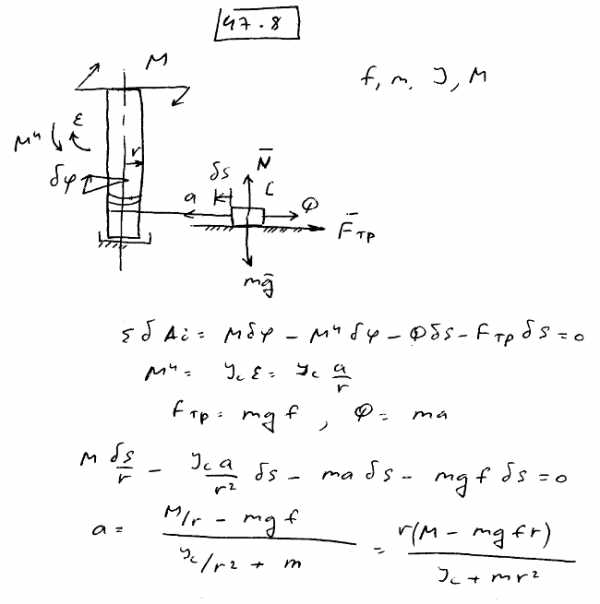 47.8
M
f, m, J, M
Mᵘ
ε
r
δφ
δs
N̄
a
C
Φ
F̄тр
mḡ
Σ δAi = Mδφ − Mᵘδφ − Φδs − Fтр δs = 0
Mᵘ = Jc ε = Jc a/r
Fтр = mgf , Φ = ma
M δs/r − Jc a/r² δs − ma δs − mgf δs = 0
a = (M/r − mgf)/(Jc/r² + m) = r(M − mgfr)/(Jc + mr²)